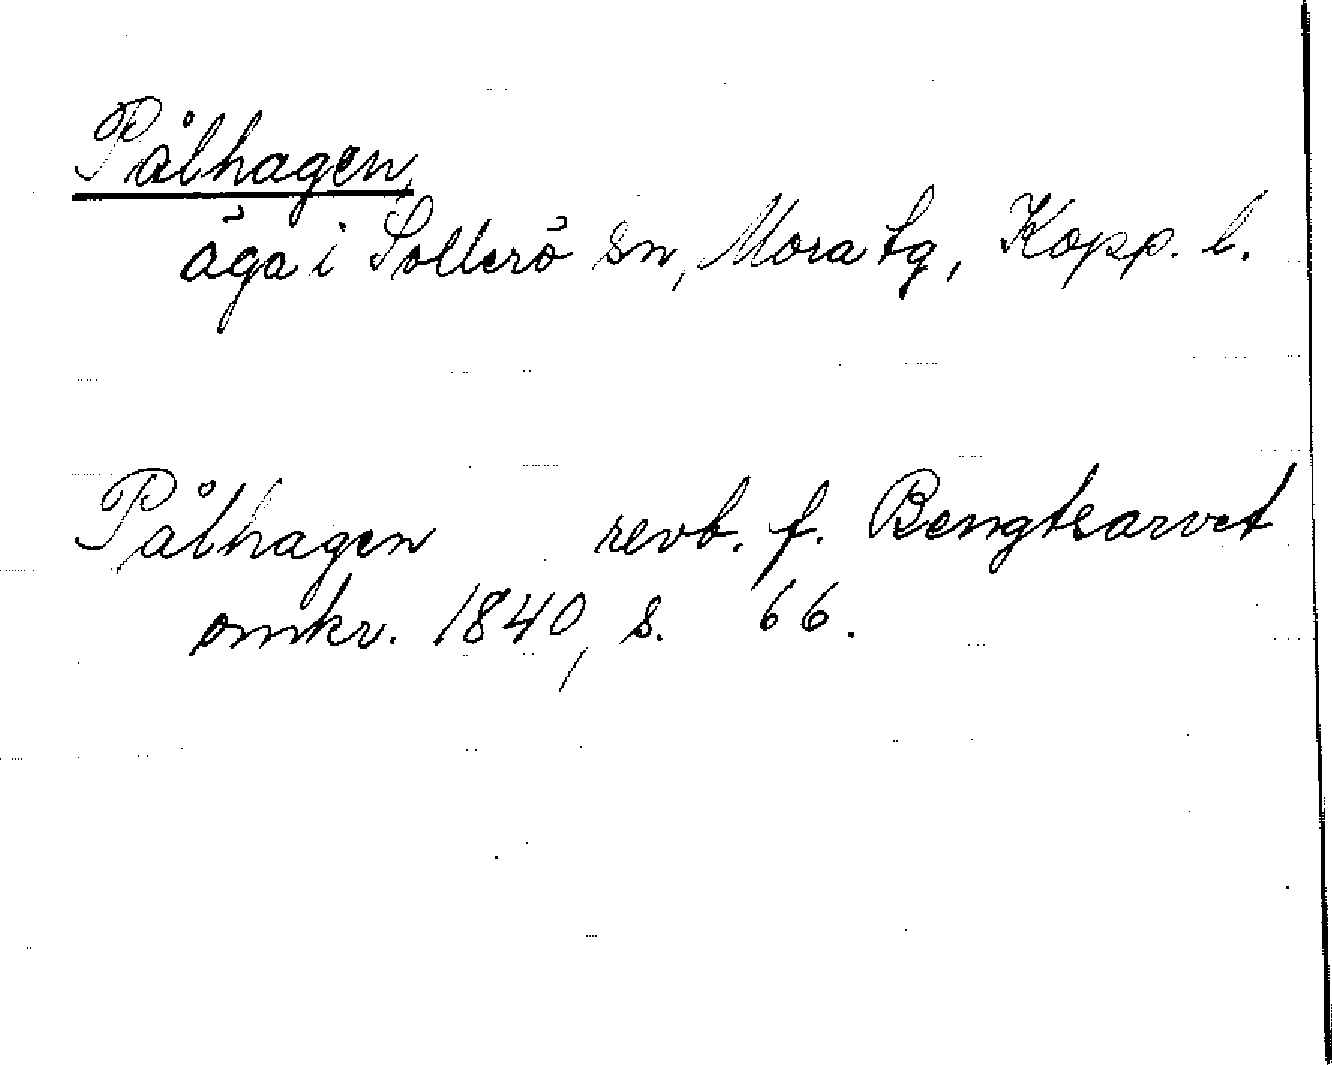 Pålhagen,
äga i Sollerö sn, Mora tg, Kopp. l.
Pålhagen revb. f. Bengtsarvet
omkr. 1840, s. 66.